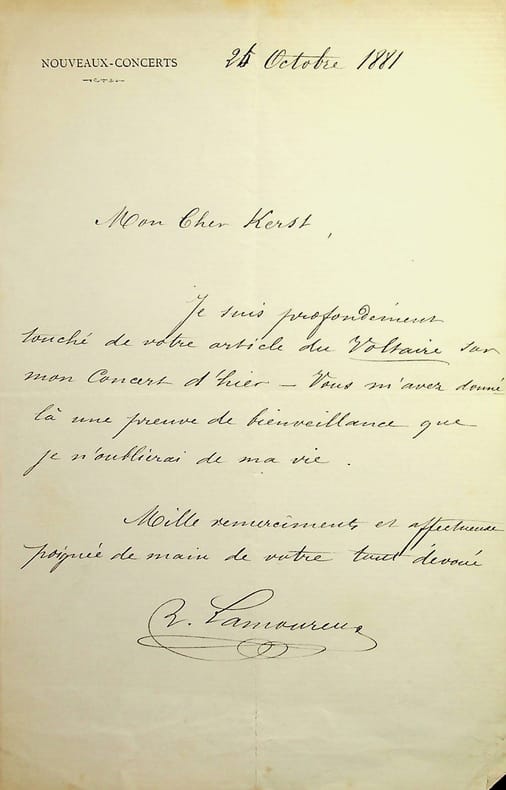 NOUVEAUX-CONCERTS
Octobre 1881
Mon Cher Kerst,
Je suis profondément
touché de votre article du Voltaire sur
mon Concert d'hier - Vous m'avez donné
là une preuve de bienveillance que
je n'oublierai de ma vie.
Mille remerciments et affectueuse
poignée de main de votre tout dévoué
Lamoureux